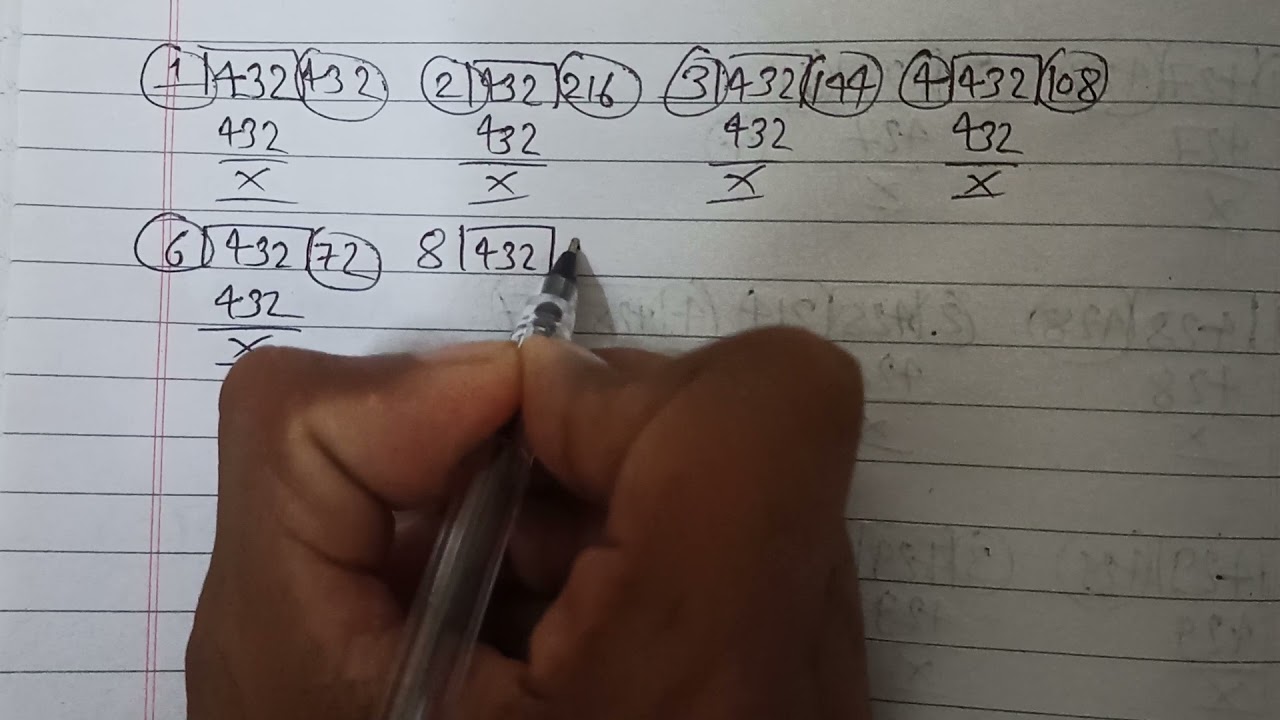 1)432(432 2)432(216 3)432(144 4)432(108
432 432 432 432
x x x x
6)432(72 8)432(
432
x